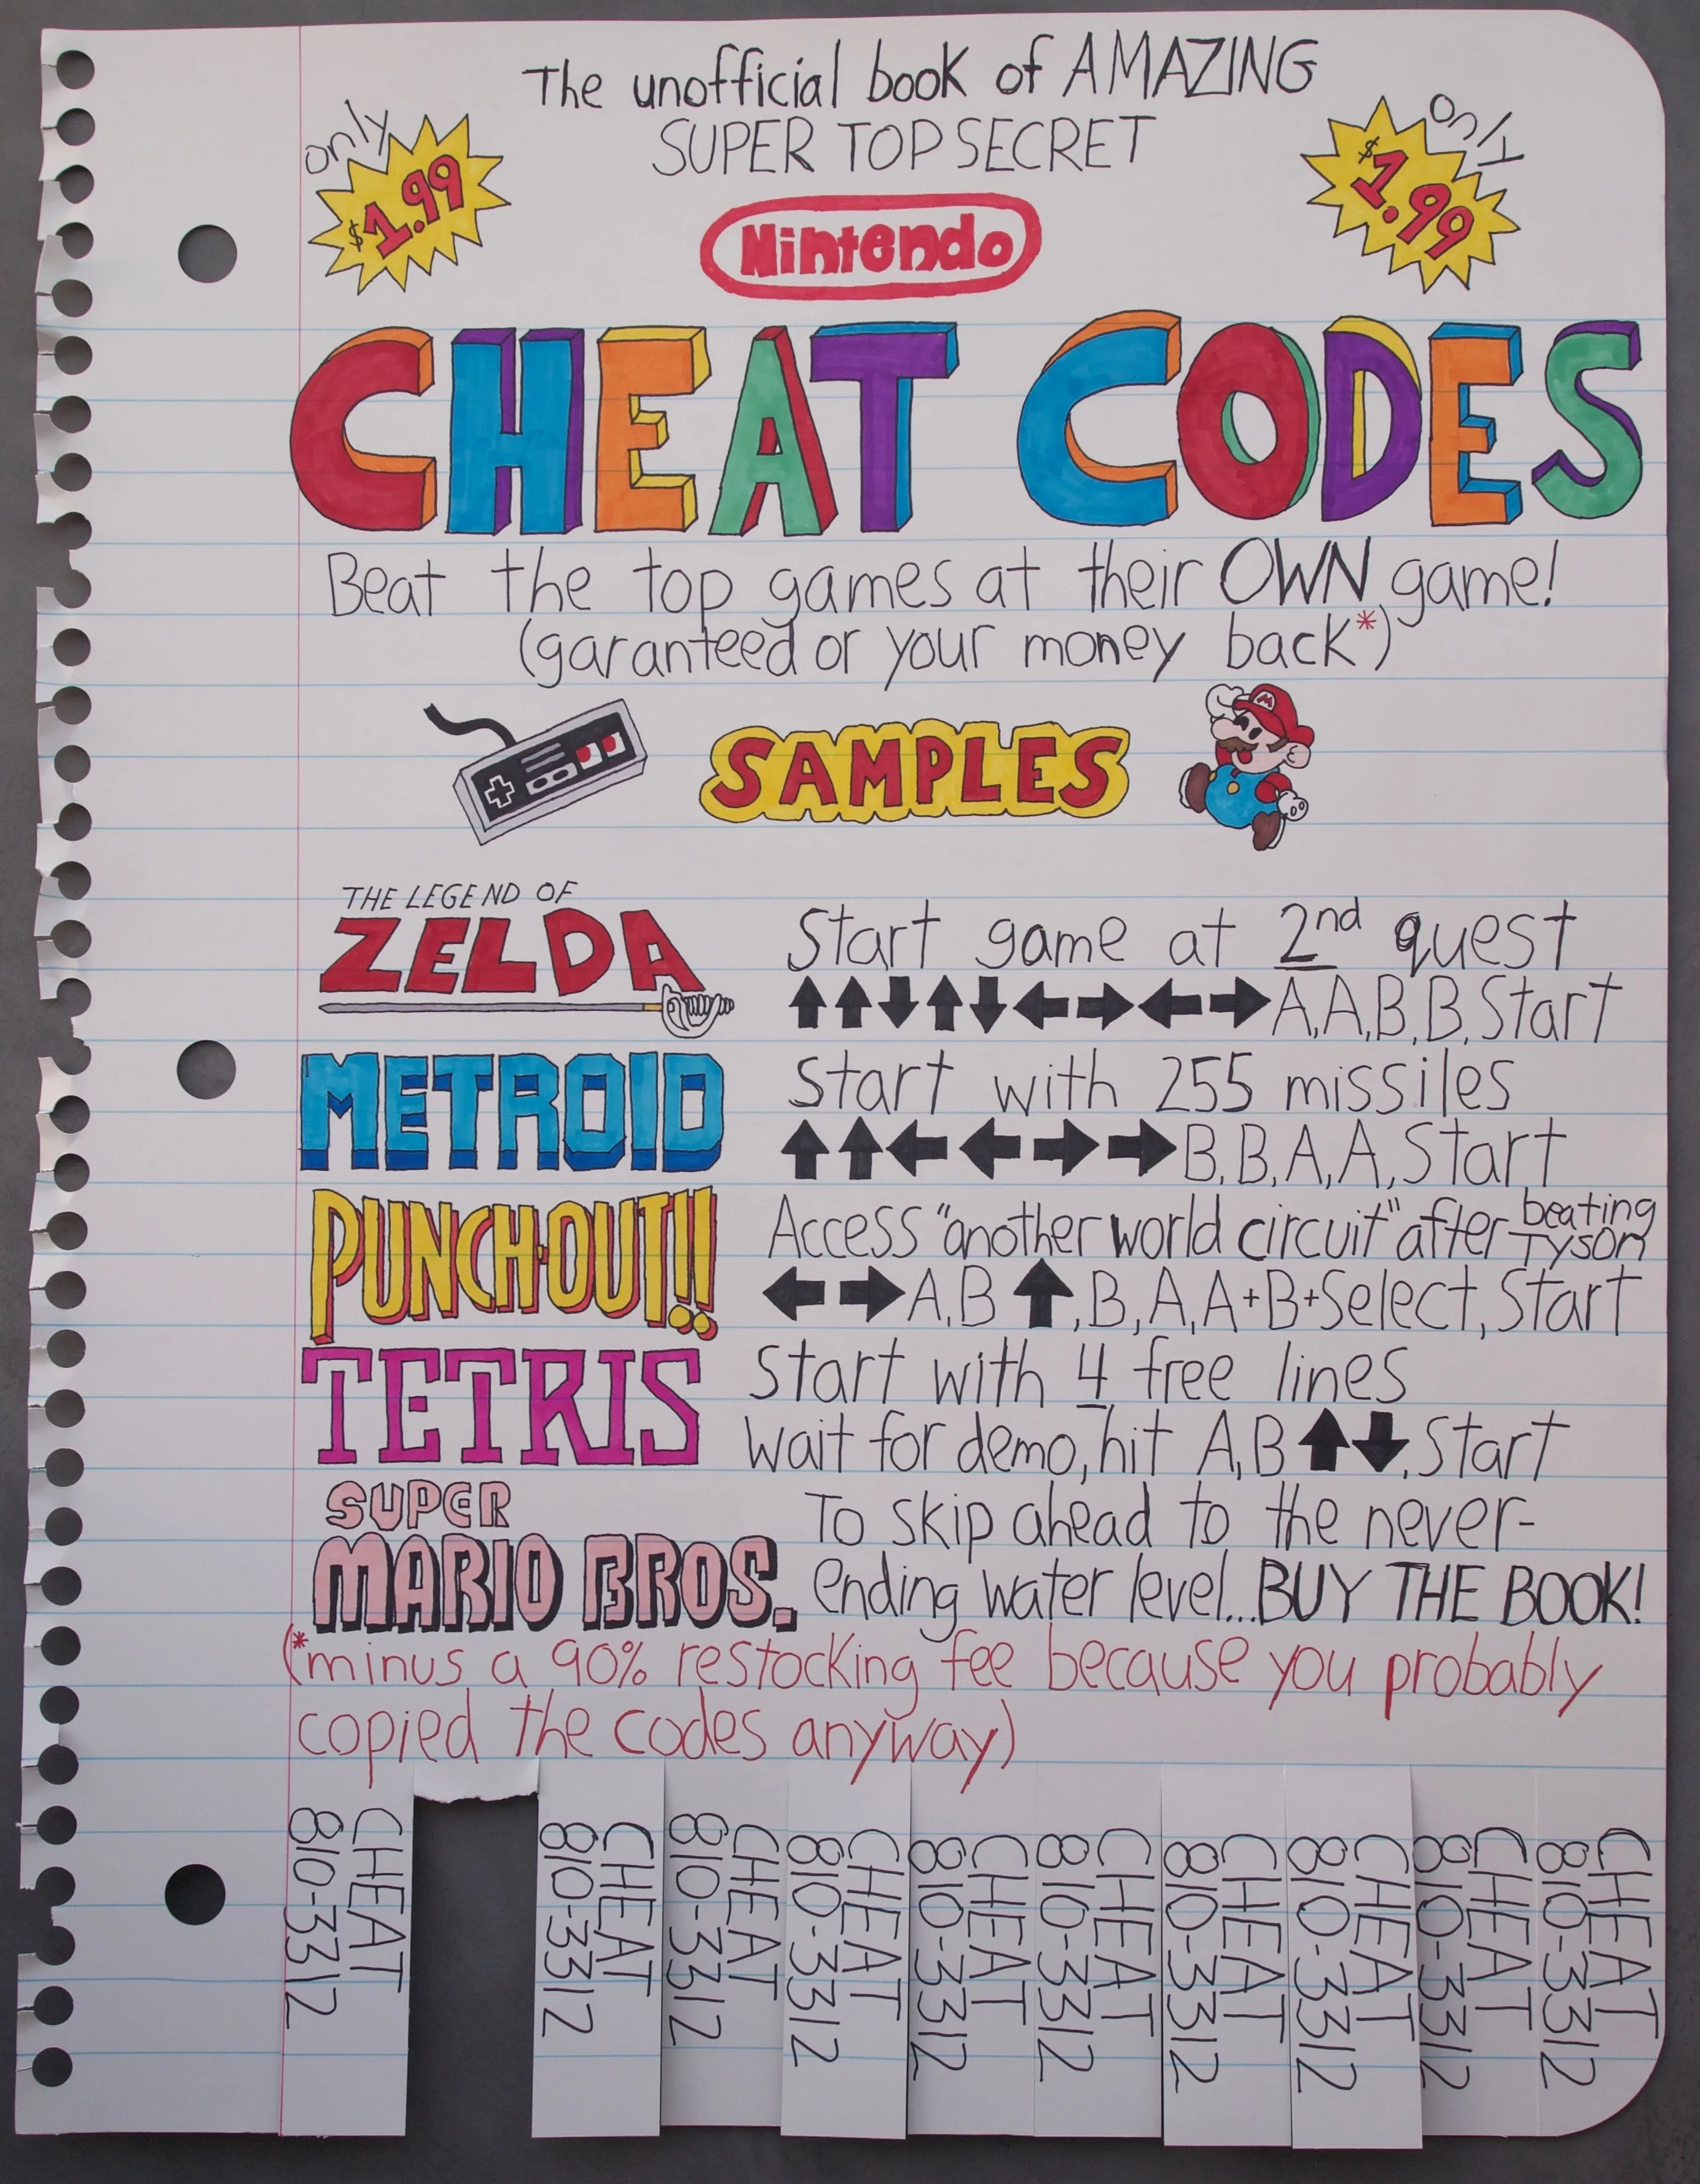 The unofficial book of AMAZING
SUPER TOP SECRET
only
$1.99
only
$1.99
Nintendo
CHEAT CODES
Beat the top games at their OWN game!
(garanteed or your money back*)
SAMPLES
M
THE LEGEND OF
ZELDA
Start game at 2nd quest
⬆⬆⬇⬆⬇⬅➡⬅➡A,A,B,B,Start
METROID
Start with 255 missiles
⬆⬆⬅⬅➡➡B,B,A,A,Start
PUNCH-OUT!!
Access "another world circuit" after beating TYSON
⬅➡A,B⬆,B,A,A+B+Select,Start
TETRIS
Start with 4 free lines
Wait for demo, hit A,B⬆⬇,Start
SUPER
MARIO BROS.
To skip ahead to the never-
ending water level...BUY THE BOOK!
(*minus a 90% restocking fee because you probably
copied the codes anyway)
CHEAT
810-3312
CHEAT
810-3312
CHEAT
810-3312
CHEAT
810-3312
CHEAT
810-3312
CHEAT
810-3312
CHEAT
810-3312
CHEAT
810-3312
CHEAT
810-3312
CHEAT
810-3312